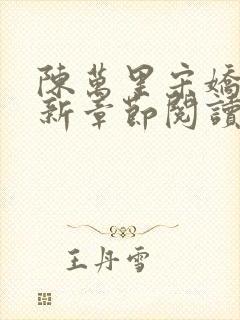 陳萬里宋嬌
新章節閱讀
王丹雪